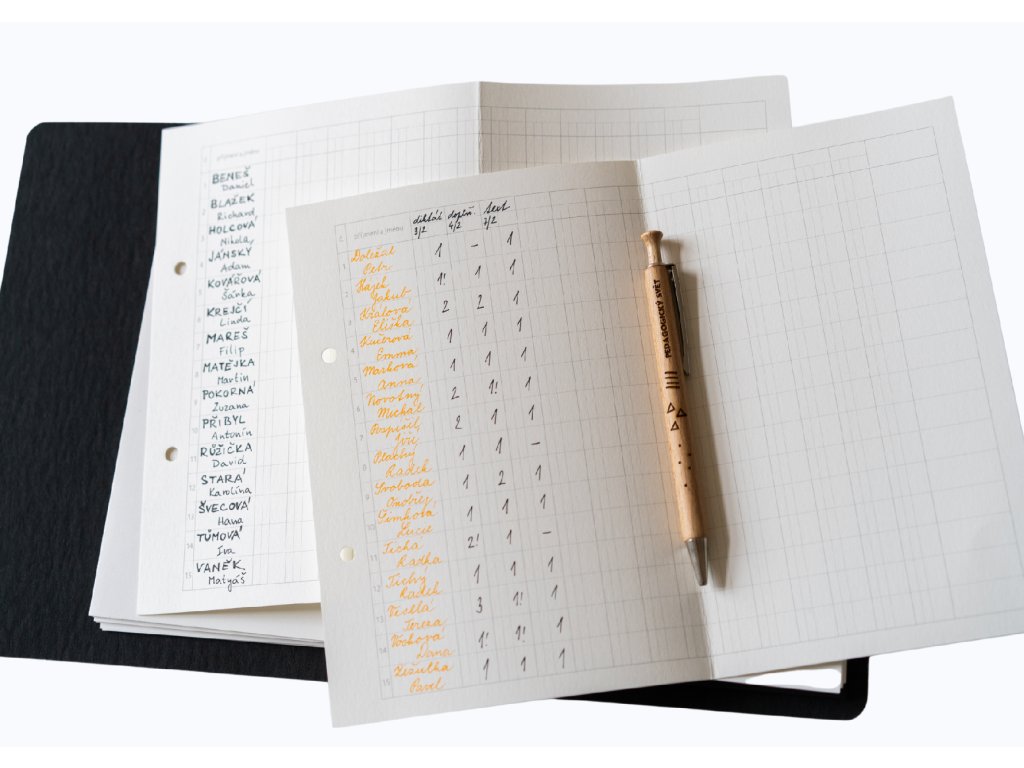 příjmení a jméno
BENEŠ
Daniel
BLAŽEK
Richard
HOLCOVÁ
Nikola
JÁNSKÝ
Adam
KOVÁŘOVÁ
Šárka
KREJČÍ
Linda
MAREŠ
Filip
MATĚJKA
Martin
POKORNÁ
Zuzana
PŘIBYL
Antonín
RŮŽIČKA
David
STARÁ
Karolína
ŠVECOVÁ
Hana
TŮMOVÁ
Iva
15 VANĚK
Matyáš
diktát doplň. test
č. příjmení a jméno 3/2 4/2 7/2
1 Doležal 1 – 1
Petr
2 Hájek 1! 1 1
Jakub
3 Králová 2 2 1
Eliška
4 Kučerová 1 1 1
Emma
5 Marková 1 1 1
Anna
6 Novotný 2 1! 1
Michal
7 Pospíšil 2 1 1
Jiří
8 Plachý 1 1 –
Radek
9 Svoboda 1 2 1
Ondřej
10 Šimková 1 1 1
Lucie
11 Tichá 2! 1 –
Radka
12 Tichý 1 1 1
Radek
13 Veselá 3 1! 1
Tereza
14 Vochová 1! 1! 1
Dana
15 Zezulka 1 1 1
Pavel
PEDAGOGICKÝ SVĚT